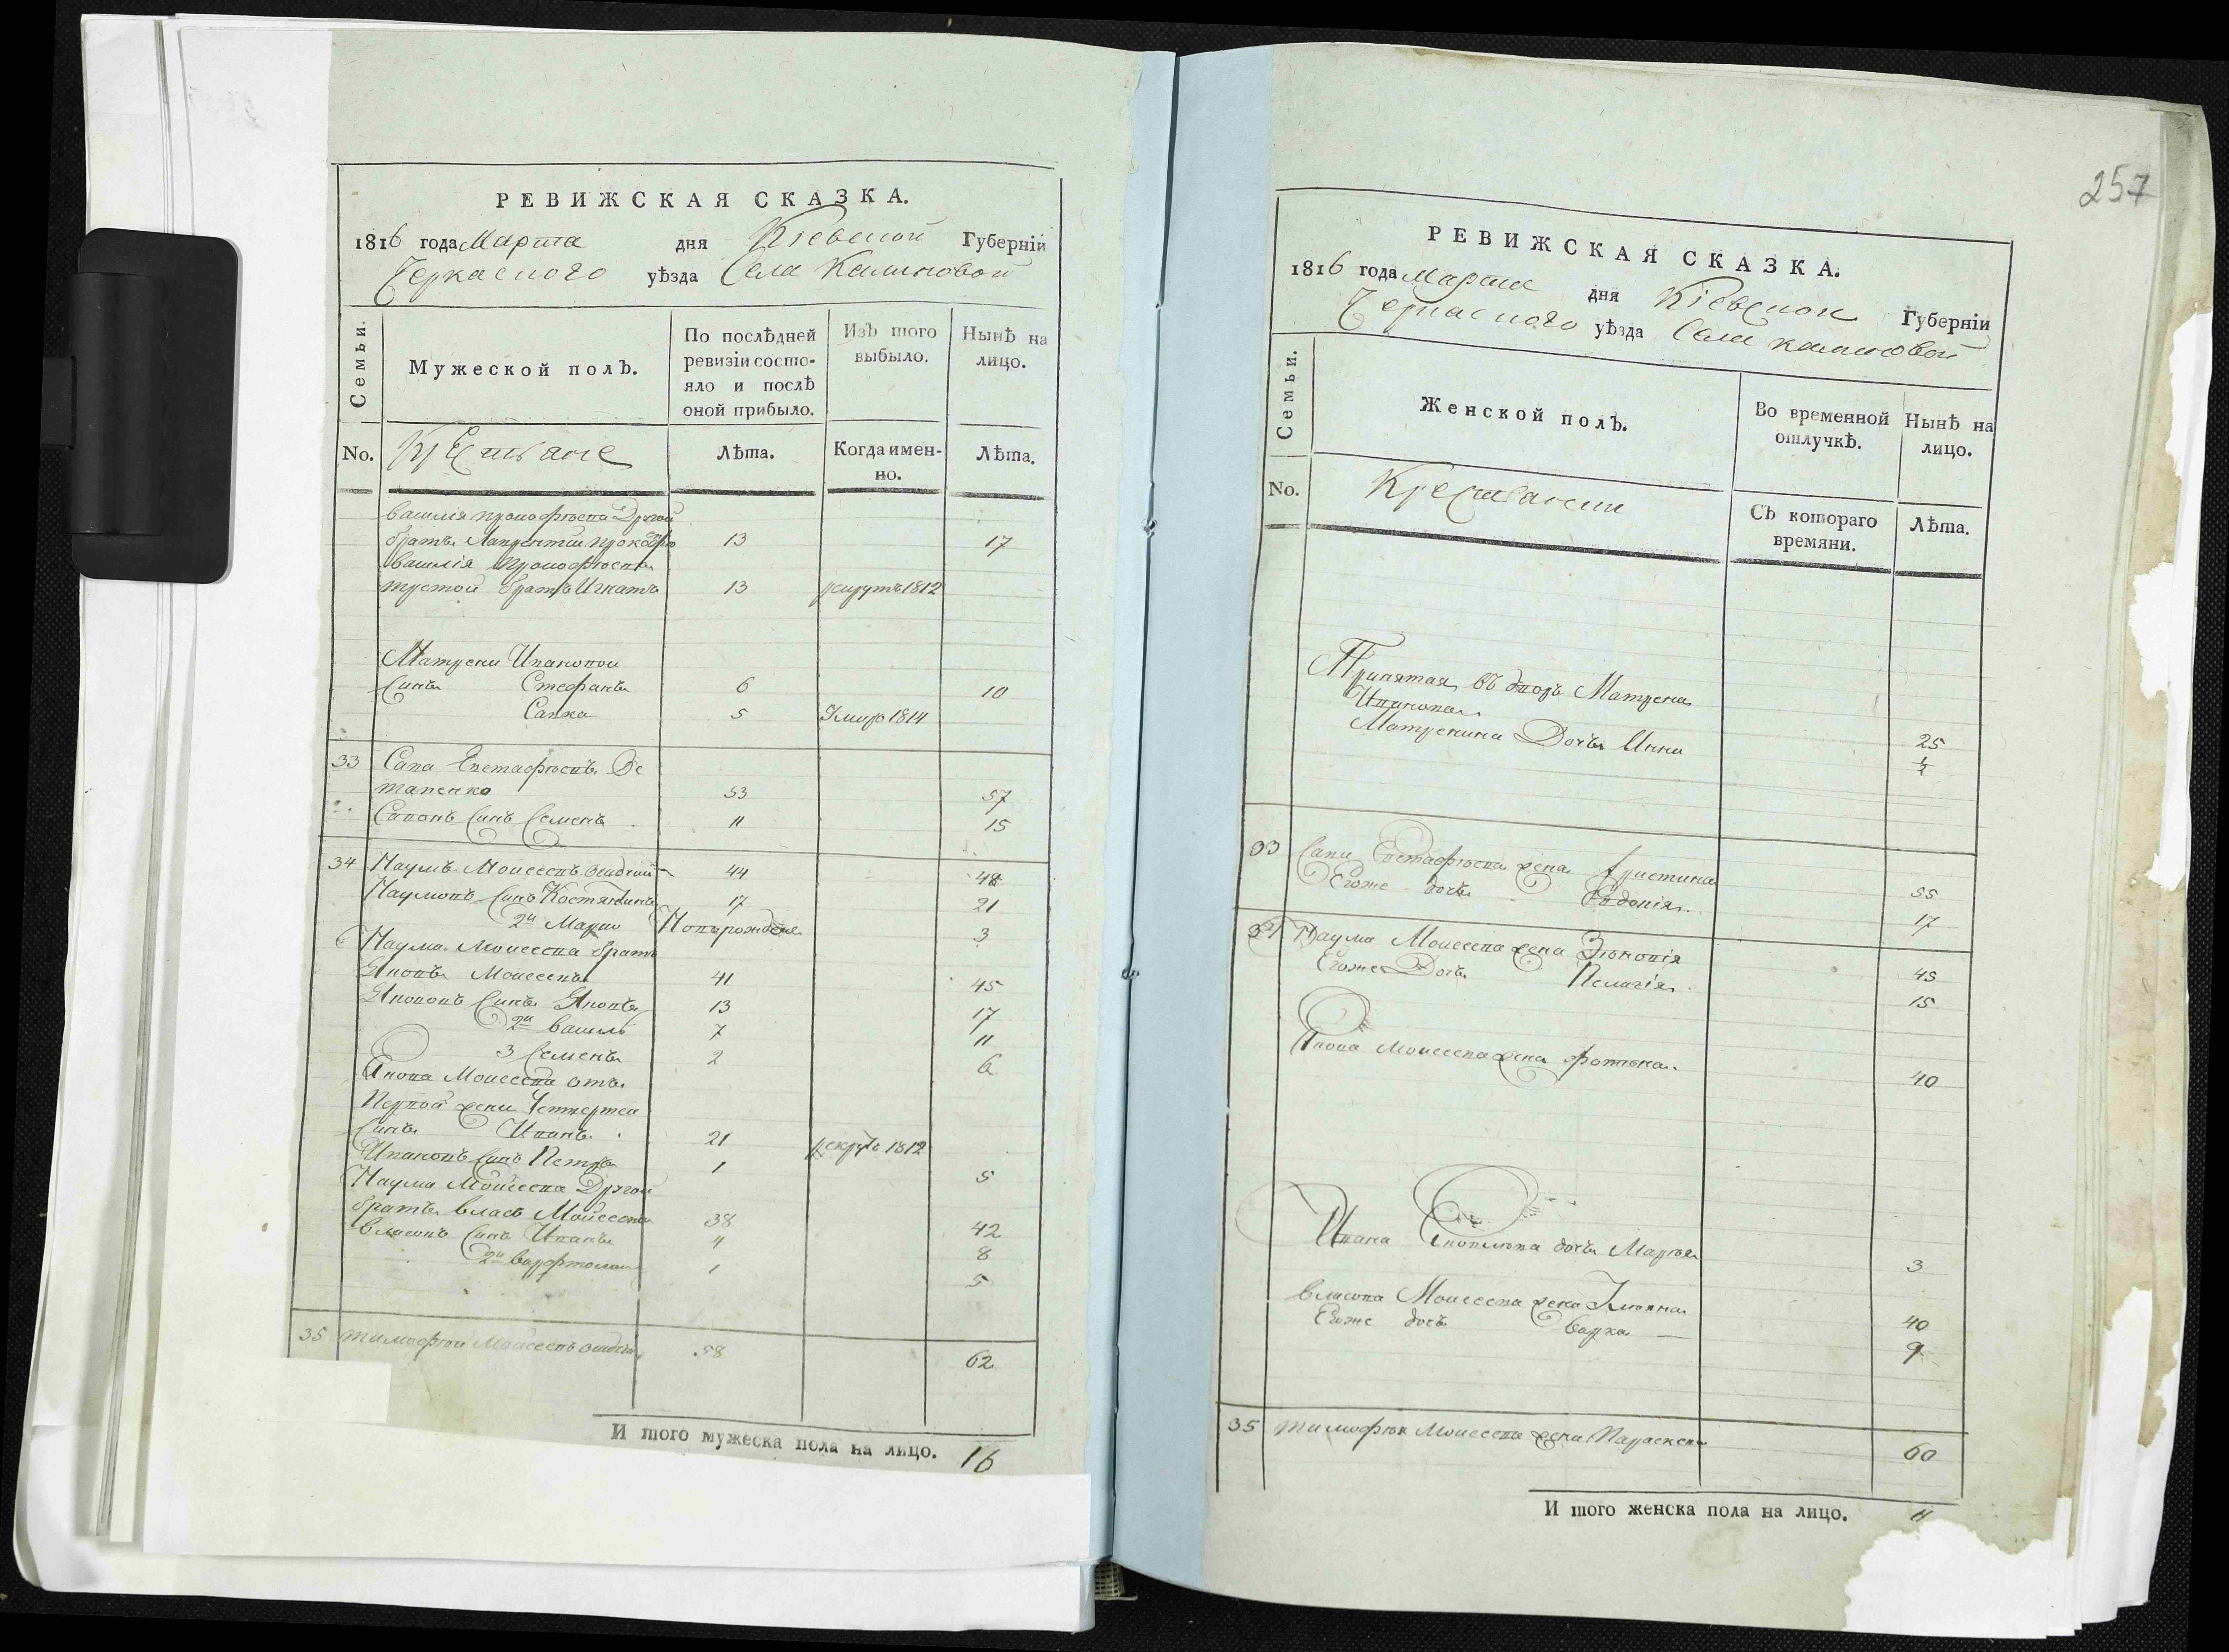 РЕВИЖСКАЯ СКАЗКА.
1816 года Марта дня Кіевской Губерніи
Черкаского уѣзда Села Калиновой
Семьи.
Мужеской полъ.
По послѣдней ревизіи состояло и послѣ оной прибыло.
Изъ того выбыло.
Нынѣ на лицо.
No. Крестьане Лѣта. Когда именно. Лѣта.
василя прокофьева Другой
братъ Лаврентий прокофью 13 17
василія Прокофьева
третой братъ Игнатъ 13 рекрутъ 1812
Матрени Ивановой
Синъ Стефанъ 6 10
Савка 5 Умиръ 1814
33 Сава Евстафьевъ Ос
тапенко 53 57
Савовъ Синъ Семенъ 11 15
34 Наумъ Моисеевъ 44 48
Наумовъ Синъ Костянтинъ 17 21
2й Марко Новорожденъ 3
Наума Моисеева братъ
Яковъ Моисеевъ 41 45
Якововъ Синъ Яковъ 13 17
2й василь 7 11
3 Семенъ 2 6
Якова Моисеева отъ
Первой жени Четвертей
Синъ Иванъ 21 рекрутъ 1812
Ивановъ Синъ Петръ 1 5
Наума Моисеева Другой
братъ власъ Моисеевъ 38 42
власовъ Синъ Иванъ 4 8
2й варфтоломей 1 5
35 тимофѣй Моисеевъ 58 62
И того мужеска пола на лицо. 16
257
РЕВИЖСКАЯ СКАЗКА.
1816 года Марта дня Кіевской Губерніи
Черкаского уѣзда Села калиновой
Семьи.
Женской полъ.
Во временной отлучкѣ.
Нынѣ на лицо.
No. Крестьански Съ котораго времяни. Лѣта.
Принятая въ дворъ Матрена
Иванова 25
Матренина Дочъ Анна ½
33 Сави Евстафьева жена Христина 55
Егоже дочъ Евдокія 17
34 Наума Моисеева жена Зѣновія 45
Егоже Дочъ Пелагія 15
Якова Моисеева жена фотѣна 40
Ивана Яковлева дочъ Марья 3
власова Моисеева жена Ульяна 40
Егоже дочъ варка 9
35 тимофѣя Моисеева жена Параскева 60
И того женска пола на лицо. 11